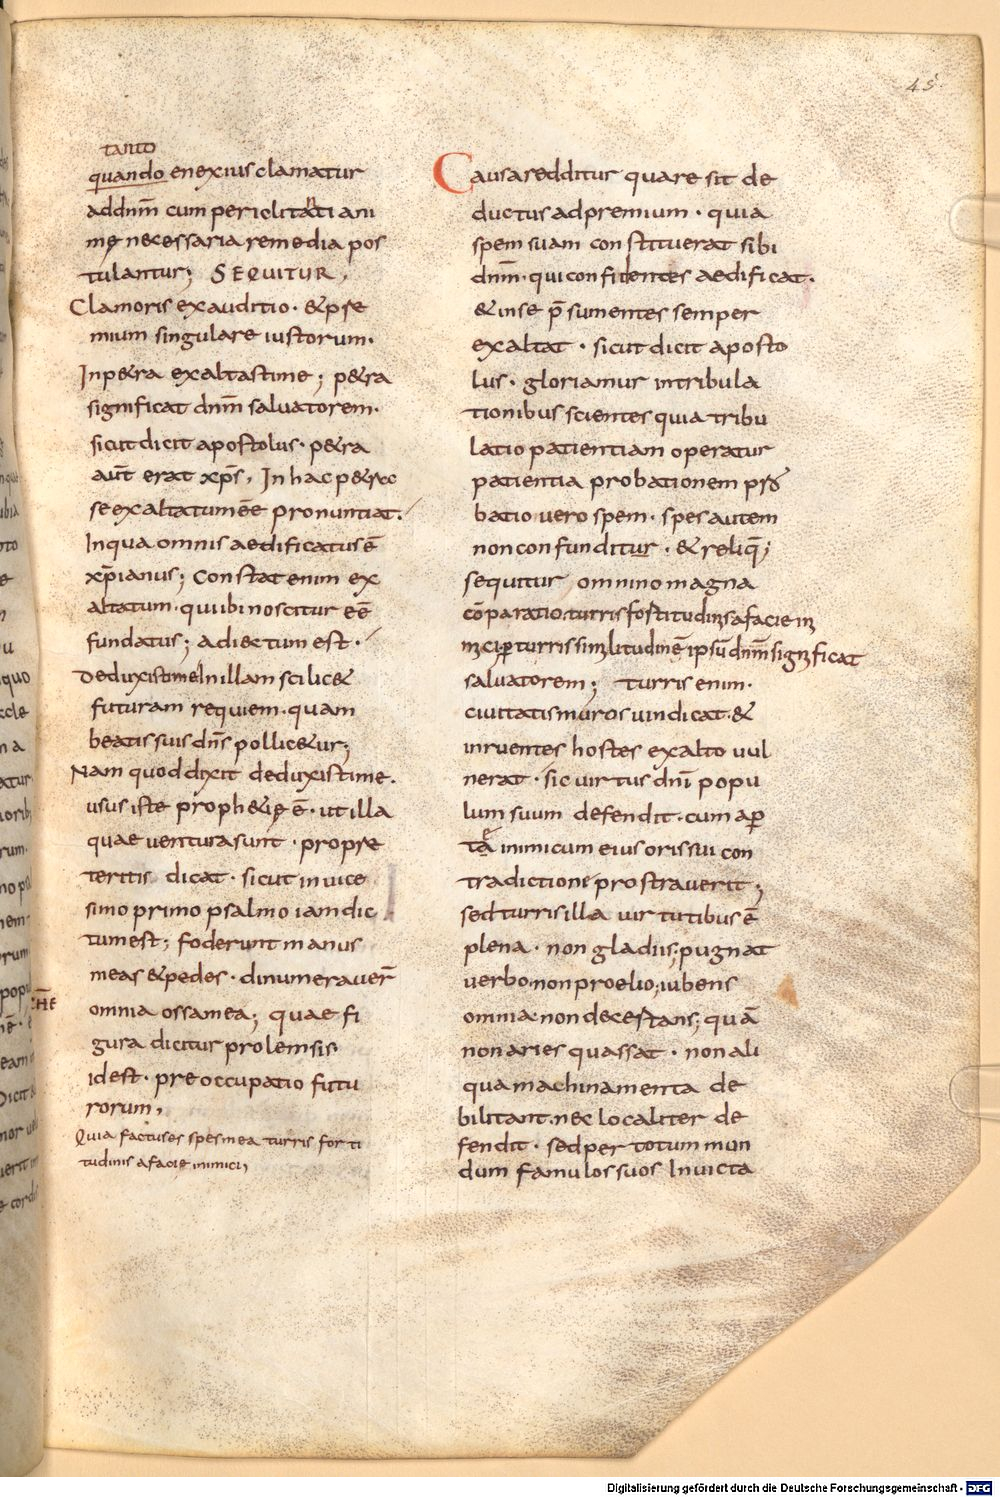 45
tanto
quando enexius clamatur
addnm̄ cum periclitanti ani
mę necessaria remedia pos
tulantur; SEQUITUR,
Clamoris exauditio · & pre
mium singulare iustorum·
In p&ra exaltasti me; p&ra
significat dnm̄ salvatorem·
sicut dicit apostolus· p&ra
aut̄ erat xp̄s, In hac p&r ec
se exaltatum ēē pronuntiat.
In qua omnis aedificatus ē
xp̄ianus; Constat enim ex
altatum· qui ibi noscitur ēē
fundatus; adiectum est·
Deduxisti me In illam scilic&
futuram requiem· quam
beatis suis dn̄s pollic&ur;
Nam quod dixit deduxisti me.
usus iste proph&ię ē· ut illa
quae ventura sunt · propre
teritis dicat· sicut in vice
simo primo psalmo iam dic
tum est; foderunt manus
meas & pedes· dinumeraver̄
omnia ossa mea; quae fi
gura dicitur prolemsis
id est· preoccupatio futu
rorum,
Quia factus es spes mea turris forti
tudinis a facie inimici,
Causa redditur quare sit de
ductus ad premium · quia
spem suam constituerat sibi
dnm̄· qui confidentes aedificat·
& in se p̄sumentes semper
exaltat · sicut dicit aposto
lus· gloriamur in tribula
tionibus scientes quia tribu
latio patientiam operatur
patientia probationem pro
batio vero spem· spes autem
non confunditur · & reliq̄;
sequitur omnino magna
cōparatio turris fortitudinis a facie in
imici turris similitudine ipsū dnm̄ significat
salvatorem; turris enim·
civitatis muros vindicat· &
inruentes hostes ex alto vul
nerat· sic virtus dnī popu
lum suum defendit· cum ap
ta inimicum eius oris sui con
tradictione prostraverit;
sed turris illa virtutibus ē
plena · non gladiis; pugnat
verbo non proelio; iubens
omnia non decertans; quā
non aries quassat · non ali
qua machinamenta de
bilitant. nec localiter de
fendit · sed per totum mun
dum famulos suos Invicta
Digitalisierung gefördert durch die Deutsche Forschungsgemeinschaft - DFG